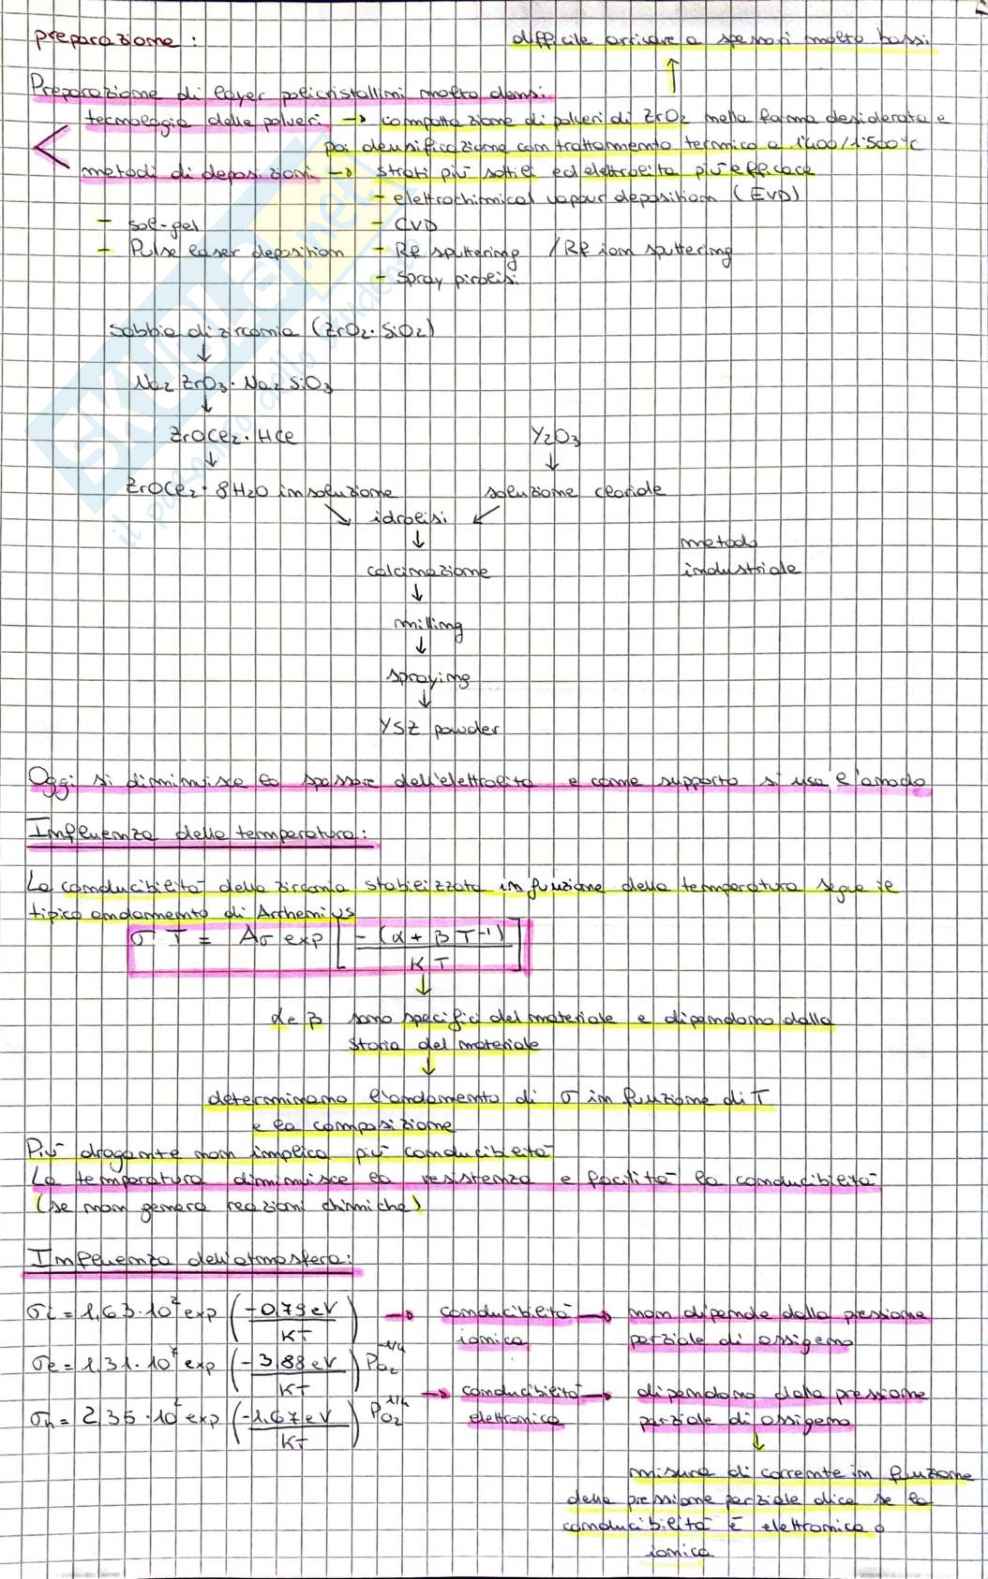 preparazione :
difficile arrivare a spessori molto bassi
Preparazione di layer policristallini molto densi.
tecnologia delle polveri → compattazione di polveri di ZrO2 nella forma desiderata e
poi densificazione con trattamento termico a 1400/1500°C
metodi di deposizioni → strati più sottili ed elettrolita più efficace
- elettrochimical vapour deposition (EVD)
- sol-gel
- CVD
- Pulse laser deposition
- RF sputtering / RF ion sputtering
- Spray pirolisi
sabbia di zirconia (ZrO2·SiO2)
↓
Na2ZrO3·Na2SiO3
↓
ZrOCl2·HCl
Y2O3
↓
↓
ZrOCl2·8H2O in soluzione
soluzione cloride
↘ idrolisi ↙
↓
metodo
calcinazione
industriale
↓
milling
↓
spraying
↓
YSZ powder
Oggi si diminuisce lo spessore dell'elettrolita e come supporto si usa l'anodo
Influenza della temperatura:
La conducibilità della zirconia stabilizzata in funzione della temperatura segue il
tipico andamento di Arrhenius
σT = Aσ exp [-(α + βT⁻¹) / KT]
↓
α e β sono specifici del materiale e dipendono dalla
storia del materiale
↓
determinano l'andamento di σ in funzione di T
e la composizione
Più drogante non implica più conducibilità
La temperatura diminuisce la resistenza e facilita la conducibilità
(se non genera reazioni chimiche)
Influenza dell'atmosfera:
σi = 1,63·10² exp (-0,79 eV / KT) → conducibilità → non dipende dalla pressione
ionica
parziale di ossigeno
σe = 1,31·10⁷ exp (-3,88 eV / KT) PO2^-1/4
→ conducibilità → dipendono dalla pressione
σh = 2,35·10² exp (-1,67 eV / KT) PO2^1/4
elettronica
parziale di ossigeno
↓
misura di corrente in funzione
della pressione parziale dice se la
conducibilità è elettronica o
ionica
SKUOLA.net